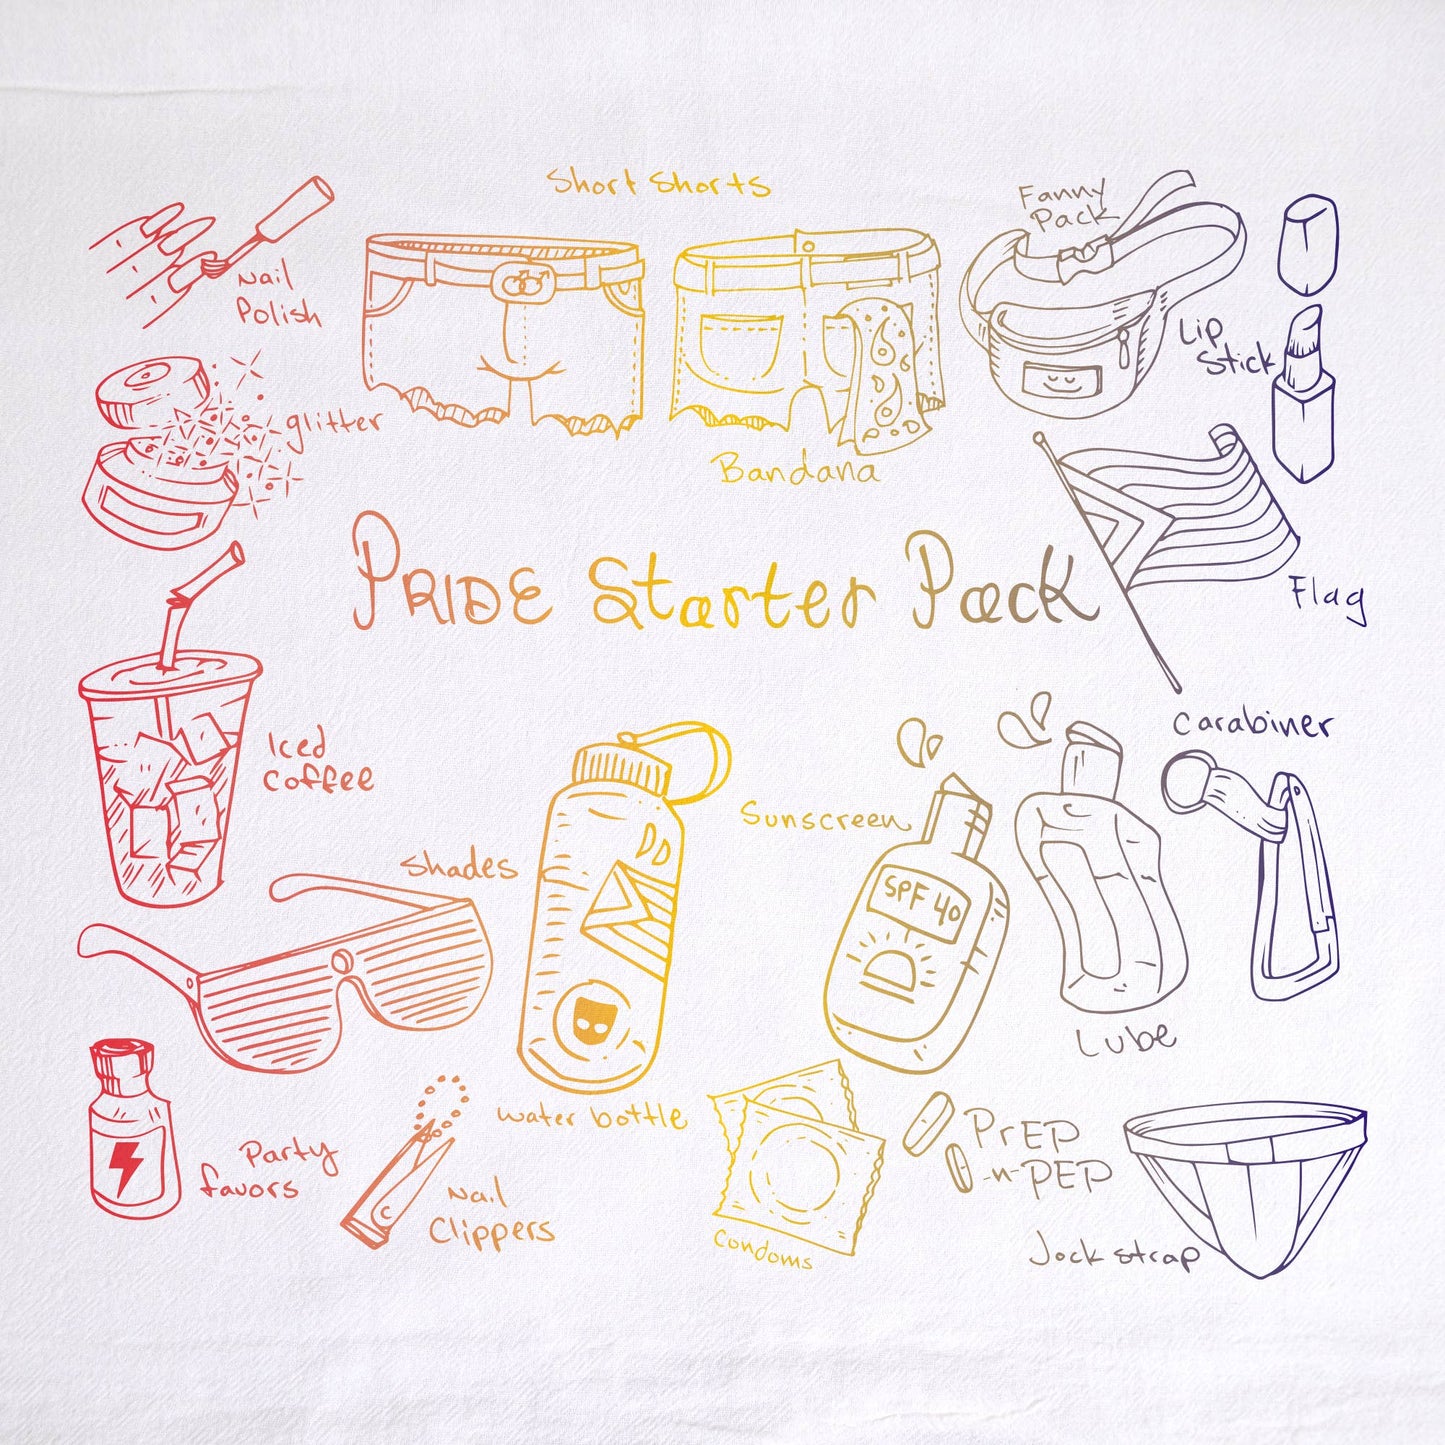 Short Shorts
Fanny
Pack
Nail
Polish
Lip
Stick
glitter
Bandana
PRIDE Starter Pack
Flag
Carabiner
Iced
Coffee
Sunscreen
Shades
SPF 40
Lube
water bottle
PrEP
-n-PEP
Party
favors
Nail
Clippers
C
Condoms
Jock strap